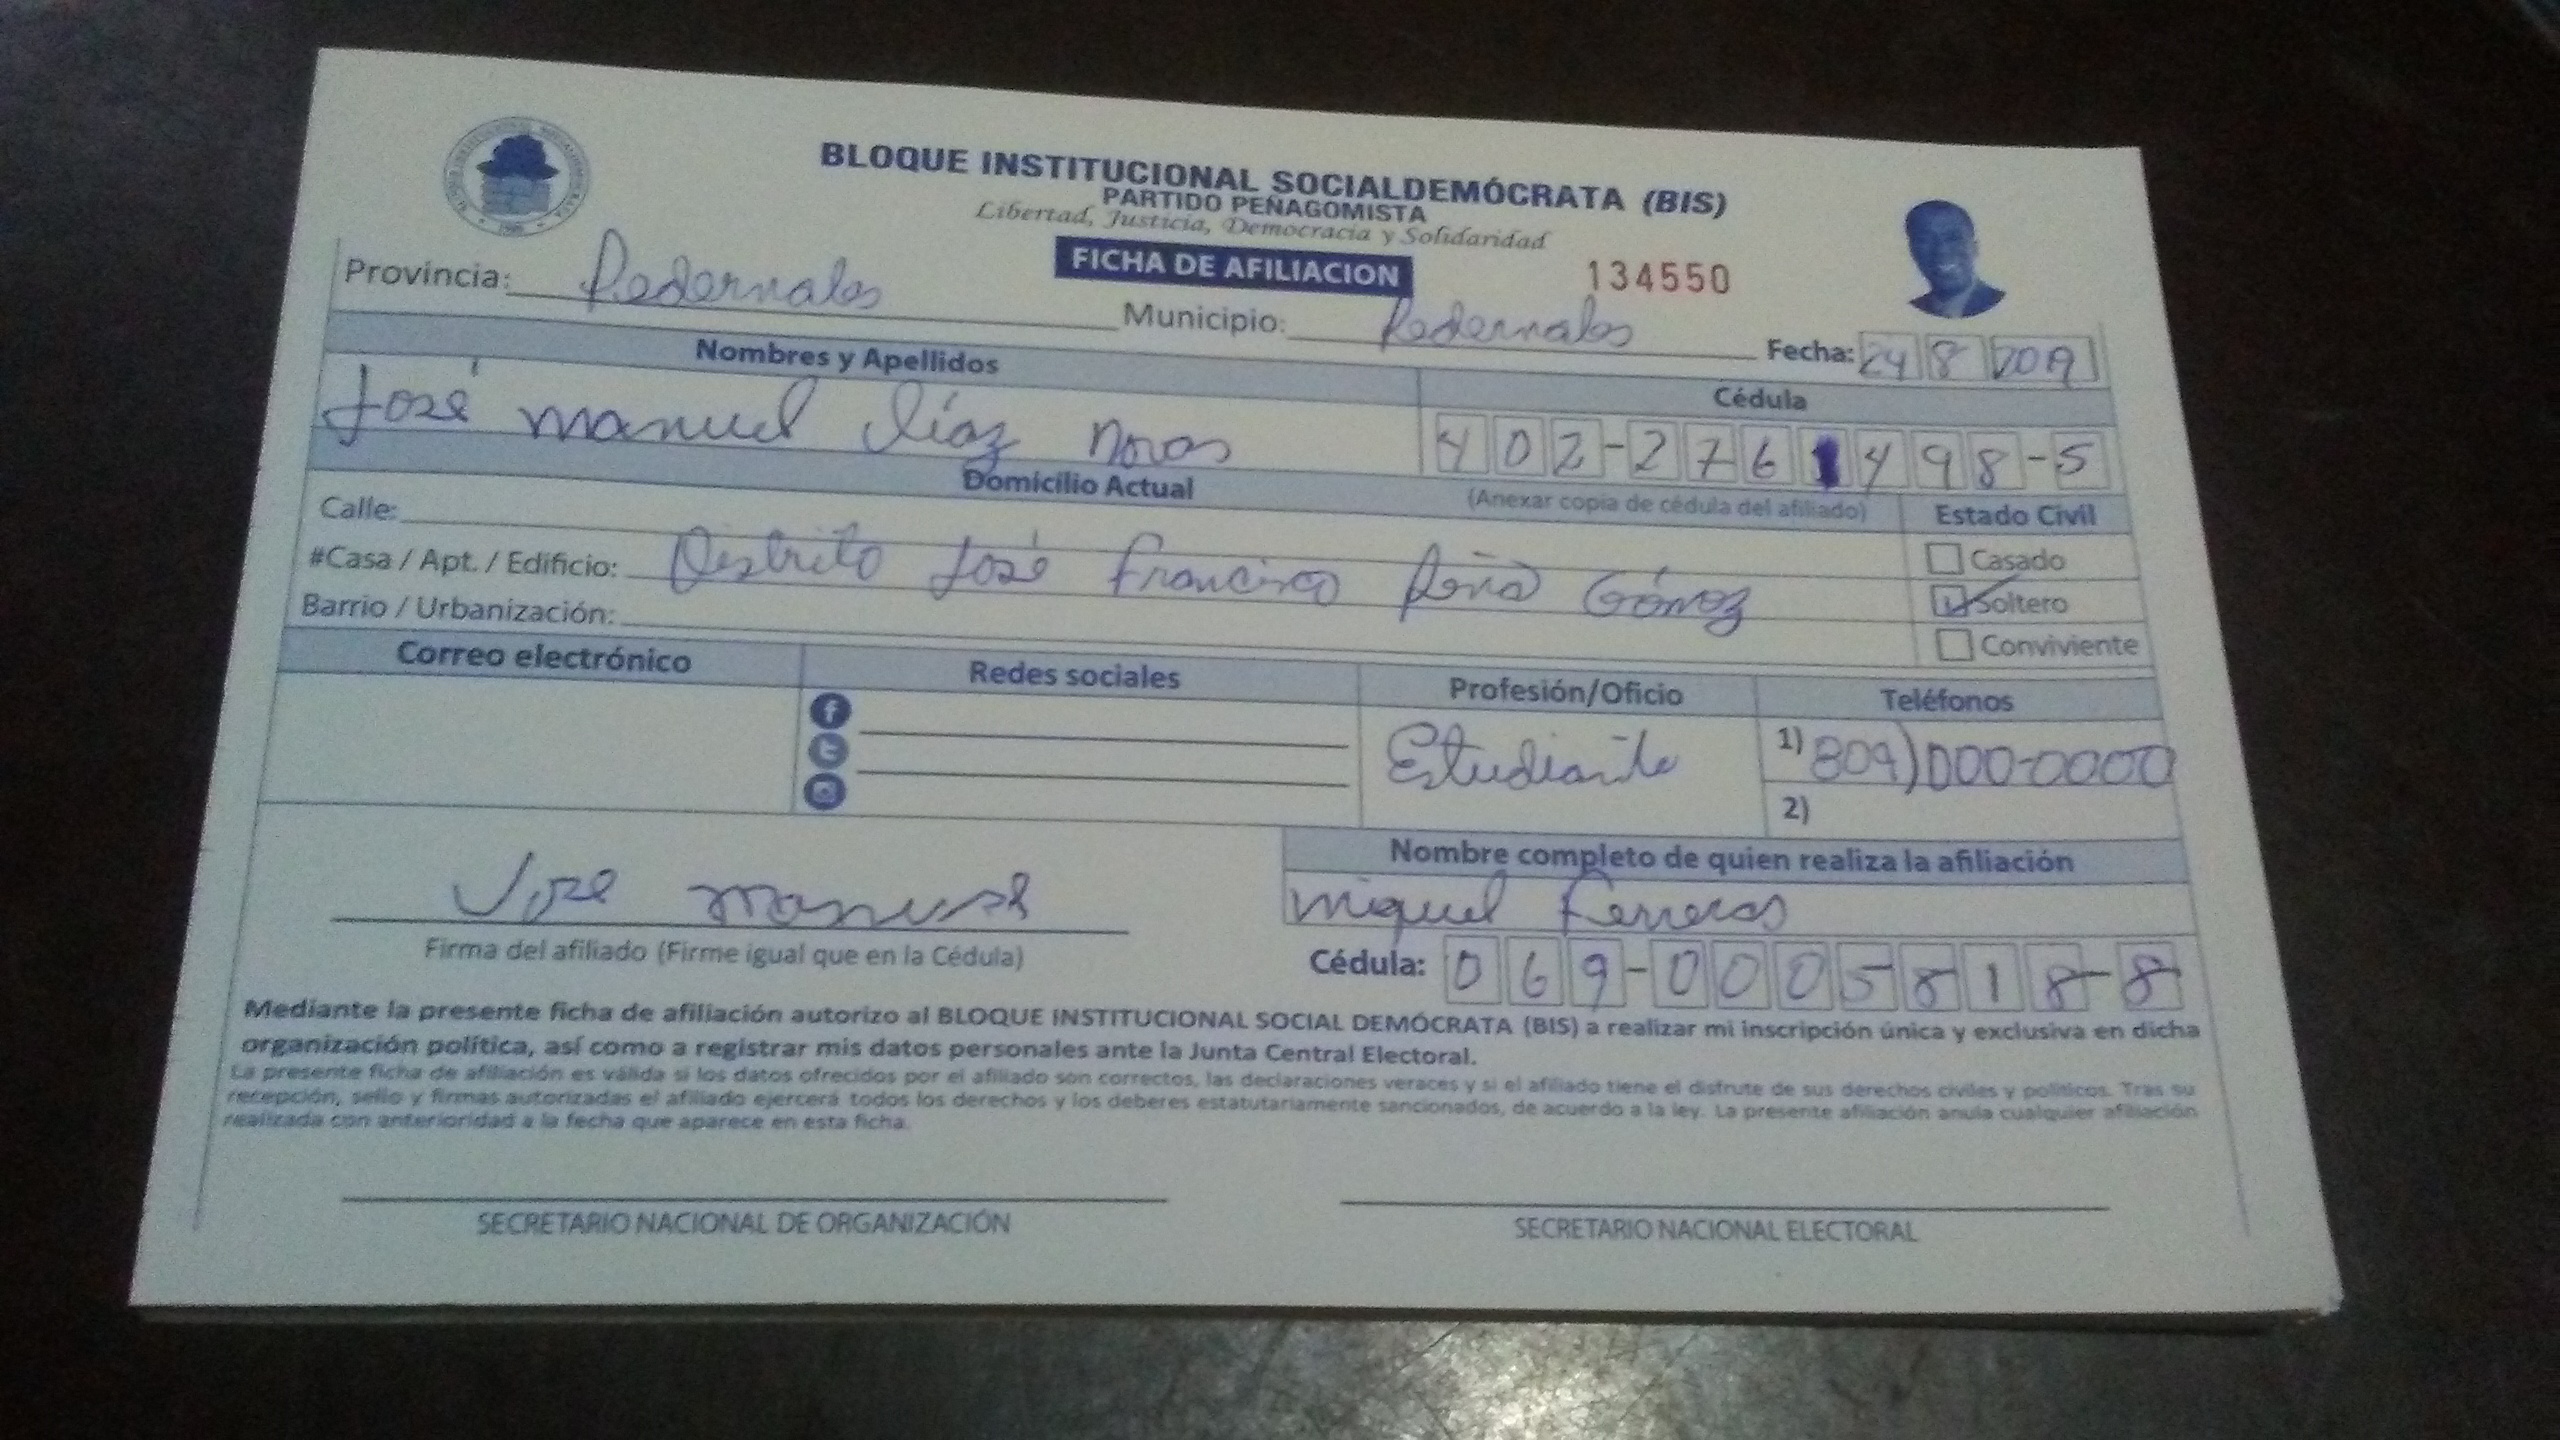 BLOQUE INSTITUCIONAL SOCIALDEMÓCRATA (BIS)
PARTIDO PEÑAGOMISTA
Libertad, Justicia, Democracia y Solidaridad
FICHA DE AFILIACION
134550
Provincia: Pedernales
Municipio: Pedernales
Fecha: 24 8 2019
Nombres y Apellidos
Cédula
José manuel Díaz novas
402-2761498-5
Domicilio Actual
(Anexar copia de cédula del afiliado)
Estado Civil
Calle:
#Casa / Apt. / Edificio: Distrito José Francisco Peña Gómez
Barrio / Urbanización:
Casado
Soltero
Conviviente
Correo electrónico
Redes sociales
Profesión/Oficio
Teléfonos
Estudiante
1) 809) 000-0000
2)
Nombre completo de quien realiza la afiliación
Jose manuel
miguel Ferreras
Firma del afiliado (Firme igual que en la Cédula)
Cédula: 069-0005818-8
Mediante la presente ficha de afiliación autorizo al BLOQUE INSTITUCIONAL SOCIAL DEMÓCRATA (BIS) a realizar mi inscripción única y exclusiva en dicha
organización política, así como a registrar mis datos personales ante la Junta Central Electoral.
La presente ficha de afiliación es válida si los datos ofrecidos por el afiliado son correctos, las declaraciones veraces y si el afiliado tiene el disfrute de sus derechos civiles y políticos. Tras su
recepción, sello y firmas autorizadas el afiliado ejercerá todos los derechos y los deberes estatutariamente sancionados, de acuerdo a la ley. La presente afiliación anula cualquier afiliación
realizada con anterioridad a la fecha que aparece en esta ficha.
SECRETARIO NACIONAL DE ORGANIZACIÓN
SECRETARIO NACIONAL ELECTORAL